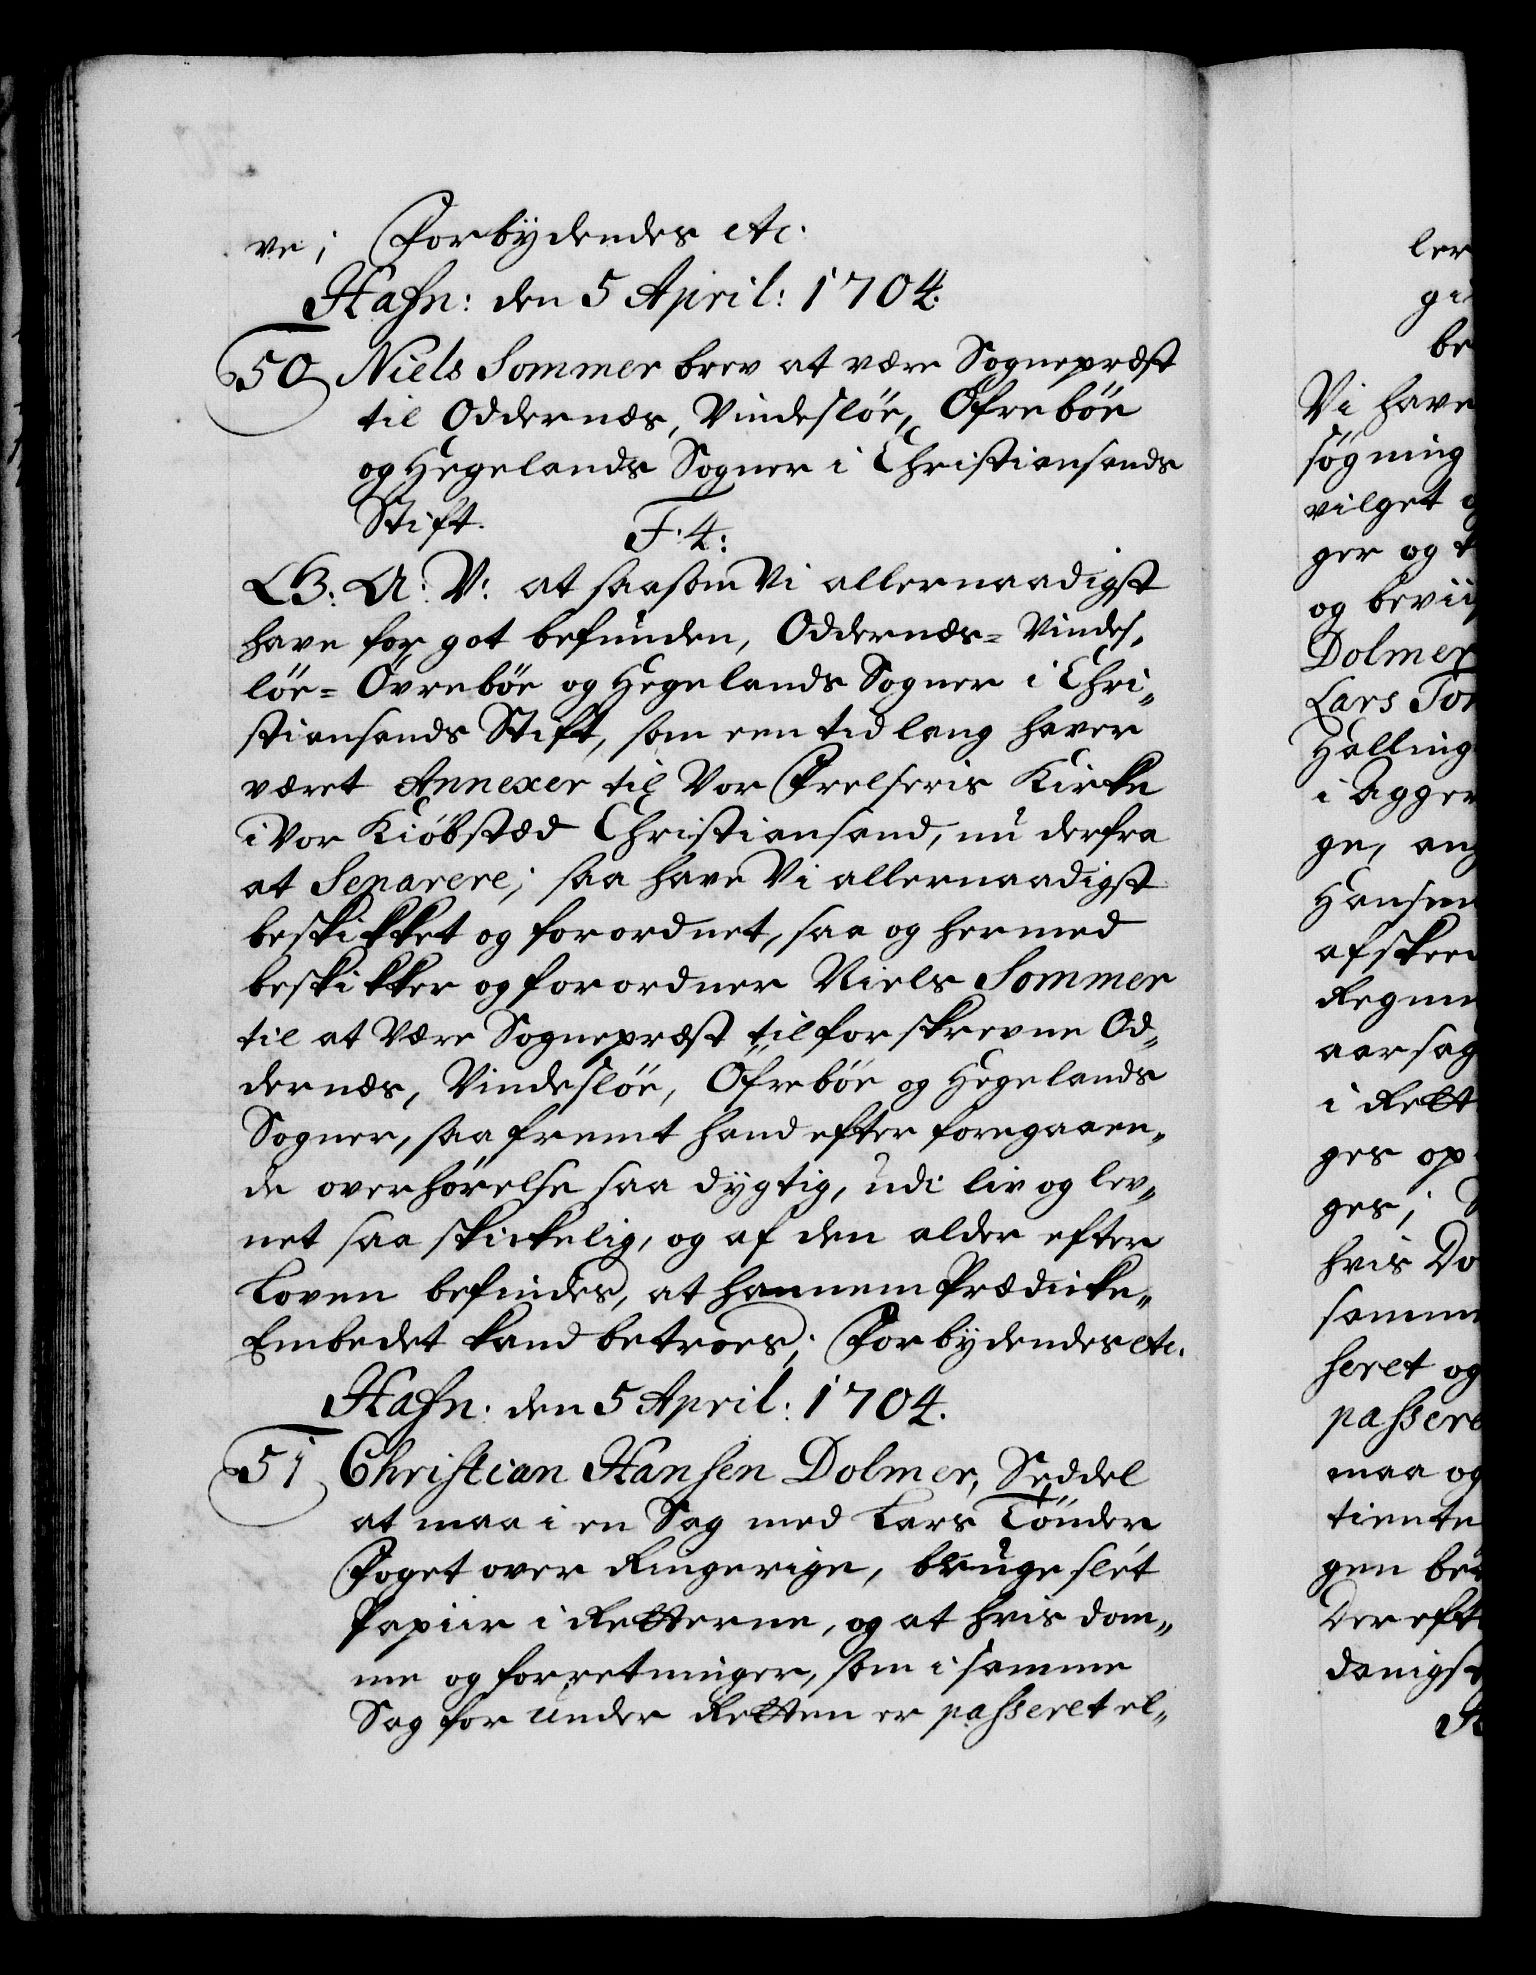 ve; Forbydendes etc.
Hafn: den 5 April: 1704.
50 Niels Sommer brev at være Sognepræst
til Oddernæs, Vindesløe, Öfrebøe
og Hegelands Sogner i Christiansands
Stift. F. 4:
G: A: V: at saasom Vi allernaadigst
have for got befunden, Oddernæs= Vindes,
løe= Övrebøe og Hegelands Sogner i Chri„
stiansands Stift, som een tid lang haver
været Annexer til Vor Frelseris Kirke
i Vor Kiøbstæd Christiansand, nu derfra
at Separere; saa have Vi allernaadigst
beskikket og forordnet, saa og hermed
beskikker og forordner Niels Sommer
til at Være Sognepræst til forskrevne Od„
dernæs, Vindesløe, Öfrebøe og Hegelands
Sogner, saa fremt hand efter foregaaen„
de overhørelse saa dygtig, udi liv og lev„
net saa skickelig, og af den alder efter
Loven befindes, at hannem Prædicke„
Embedet kand betroes; Forbydendes etc.
Hafn: den 5 April: 1704.
51 Christian Hansen Dolmer, Seddel
at maa i en Sag med Lars Tønder
Foget over Ringerige, bruge slet
Papiir i Retterne, og at hvis dom„
me og forretninger, som i samme
Sag for Under Retten er passeret el„
ler
be
Vi have
søgning
vilget
ger og
og beviis
Dolmer
Lars Tøn
Halling
i Agger
ge, ang
Hansen
afskeed
Regn
aarsag
i Rett
ges op
ges;
hvis Do
samm
seret og
passere
maa og
tiente
gen be
Der eft
danigst